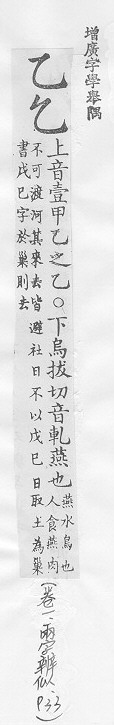 增廣字學舉隅
乙𠃉
上音壹甲乙之乙○下烏拔切音軋燕也
燕水鳥也
人食燕肉
不可渡河其來去皆避社日不以戊巳日取土為巢
書戊巳字於巢則去
(卷一、兩字辨似、P33)